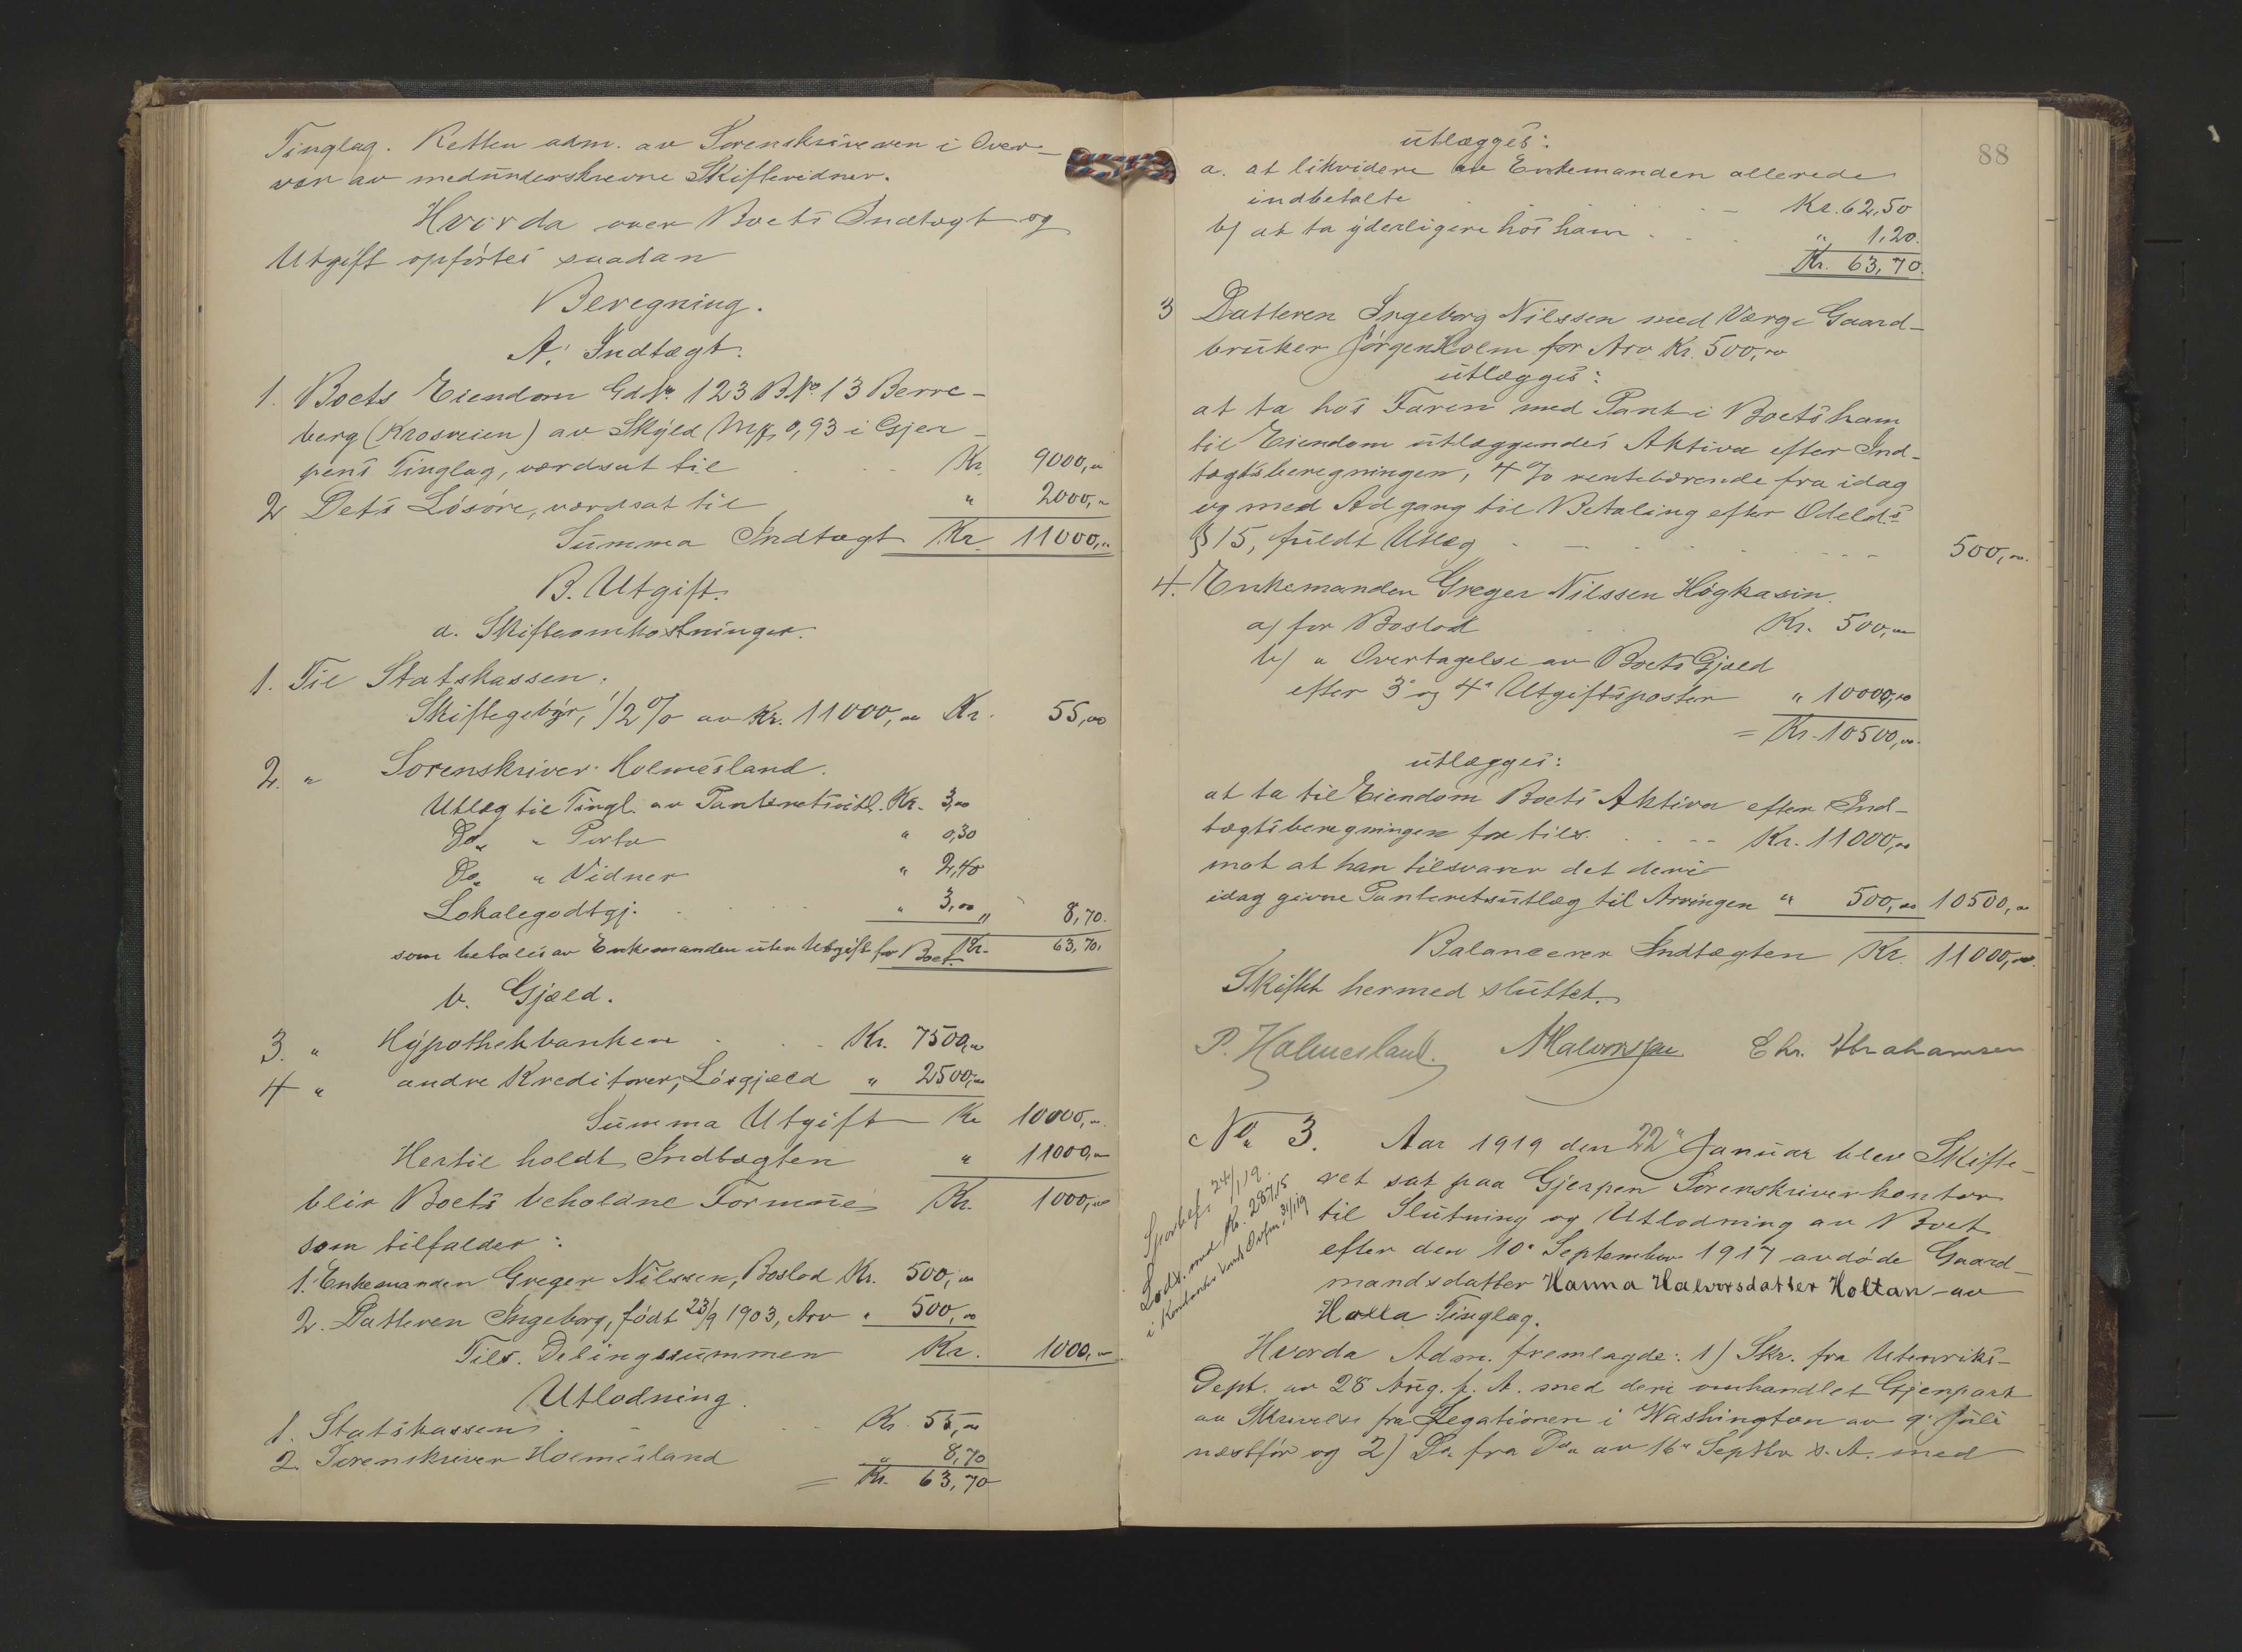 Tinglag. Retten adm. av Sorenskriveren i Over-
vær av medunderskrevne Skiftevidner.
Hvorda over Boets Indtægt og
Utgift opførtes saadan
Beregning.
A. Indtægt.
1. Boets Eiendom Gd No. 123 B No. 13 Berre-
berg (Krosveien) av Skyld Mk. 0,93 i Gjer-
pens Tinglag, værdsat til . . . Kr. 9000,00
2 Dets Løsøre, værdsat til " 2000,00
Summa Indtægt Kr. 11000,00
B. Utgift.
a. Skifteomkostninger.
1. Til Statskassen:
Skiftegebyr, 1/2 % av Kr. 11000,00 Kr. 55,00
2. " Sorenskriver Holmesland.
Utlæg til Tingl. av Panteretsutl. Kr. 3,00
Do. " Porto " 0,30
Do. " Vidner " 2,40
Lokalegodtgj. . . . " 3,00 " 8,70.
som betales av Enkemanden uten Utgift for Boet. Kr. 63,70.
b. Gjæld.
3. " Hypothekbanken . . . Kr. 7500,00
4 " andre Kreditorer, Løsgjæld " 2500,00
Summa Utgift Kr 10000,00
Hertil holdt Indtægten " 11000,00
blir Boets beholdne Formue Kr. 1000,00
som tilfalder:
1. Enkemanden Greger Nilssen, Boslod Kr. 500,00
2. Datteren Ingeborg, født 23/9 1903, Arv " 500,00
Tils. Delingssummen Kr. 1000,00
Utlodning.
1. Statskassen . . . Kr. 55,00
2. Sorenskriver Holmesland " 8,70
= Kr. 63,70
88
utlægges:
a. at likvidere av Enkemanden allerede
indbetalte . . . Kr. 62,50
b) at ta yderligere hos ham . . . " 1,20.
Kr. 63,70.
3 Datteren Ingeborg Nilssen med Værge Gaard-
bruker Jørgen Holm for Arv Kr. 500,00
utlægges:
at ta hos Faren med Pant i Boets ham
til Eiendom utlæggendes Aktiva efter Ind-
tægtsberegningen, 4 % rentebærende fra idag
og med Adgang til Betaling efter Odelsl.s
§ 15, fuldt Utlæg . . . 500,00.
4. Enkemanden Greger Nilssen Høgkasin.
a) for Boslod . Kr. 500,00
b) " Overtagelse av Boets Gjæld
efter 3' og 4' Utgiftsposter " 10000,00
= Kr. 10500,00.
utlægges:
at ta til Eiendom Boets Aktiva efter Ind-
tægtsberegningen for tils. . . . Kr. 11000,00
mot at han tilsvarer det deri
idag givne Panteretsutlæg til Arvingen " 500,00 10500,00
Balancerer Indtægten Kr. 11000,00.
Skiftet hermed sluttet.
P. Holmesland. Halvorsen Chr. Abrahamsen
No. 3. Aar 1919 den 22" Januar blev Skifte-
ret sat paa Gjerpen Sorenskriverkontor
til Slutning og Utlodning av Boet
efter den 10' September 1917 avdøde Gaard-
mandsdatter Hanna Halvorsdatter Holtan av
Holla Tinglag.
Hvorda Adm. fremlagde: 1) Skr. fra Utenriks-
Dept. av 28 Aug. f. A. med deri omhandlet Gjenpart
av Skrivelse fra Legationen i Washington av 9' Juli
næstfør og 2) Do. fra Do. av 16" Septbr s. A. med